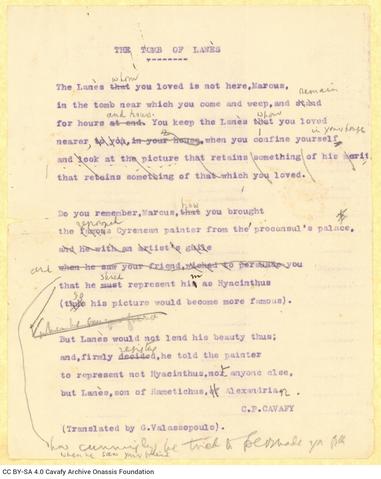 THE TOMB OF LANÈS
whom
The Lanès that you loved is not here, Marcus,
remain
in the tomb near which you come and weep, and stand
and hours whom
for hours at end. You keep the Lanès that you loved
in your house
nearer to you, in your house, when you confine yourself
and look at the picture that retains something of his merit,
that retains something of that which you loved.
how
Do you remember, Marcus, that you brought
renowned
the famous Cyrenean painter from the proconsul's palace,
and he with an artist's guile
and
when he saw your friend, wished to persuade you
that he must represent him as Hyacinthus
so
(thus his picture would become more famous).
when he saw your friend
But Lanès would not lend his beauty thus;
and, firmly decided, he told the painter
to represent not Hyacinthus, nor anyone else,
but Lanès, son of Rametichus, Alexandrian.
C.P.CAVAFY
(Translated by G.Valassopoulo).
how cunningly he tried to persuade you
when he saw your friend
CC BY-SA 4.0 Cavafy Archive Onassis Foundation